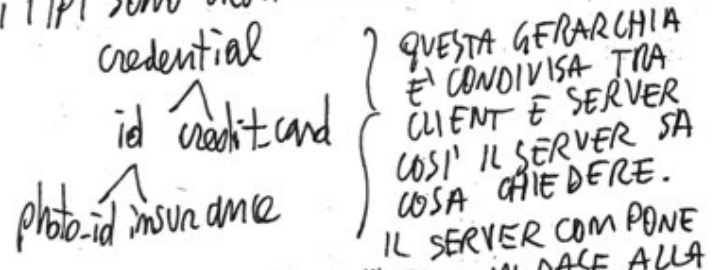 I TIPI SONO
credential
id credit-card
photo-id insurance
QUESTA GERARCHIA
E' CONDIVISA TRA
CLIENT E SERVER
COSI' IL SERVER SA
COSA CHIEDERE.
IL SERVER COMPONE
IN BASE ALLA